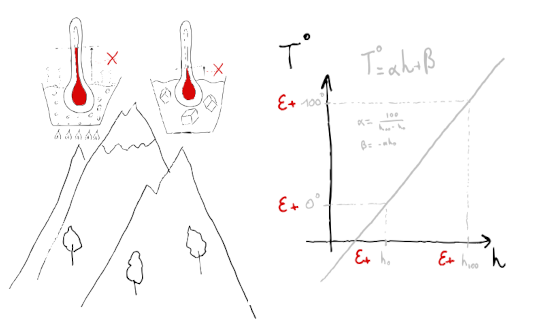 X
X
T°
T° = αh+β
ε+ 100°
α = 100 / h₁₀₀ - h₀
β = -αh₀
ε+ 0°
ε+ h₀
ε+ h₁₀₀
h